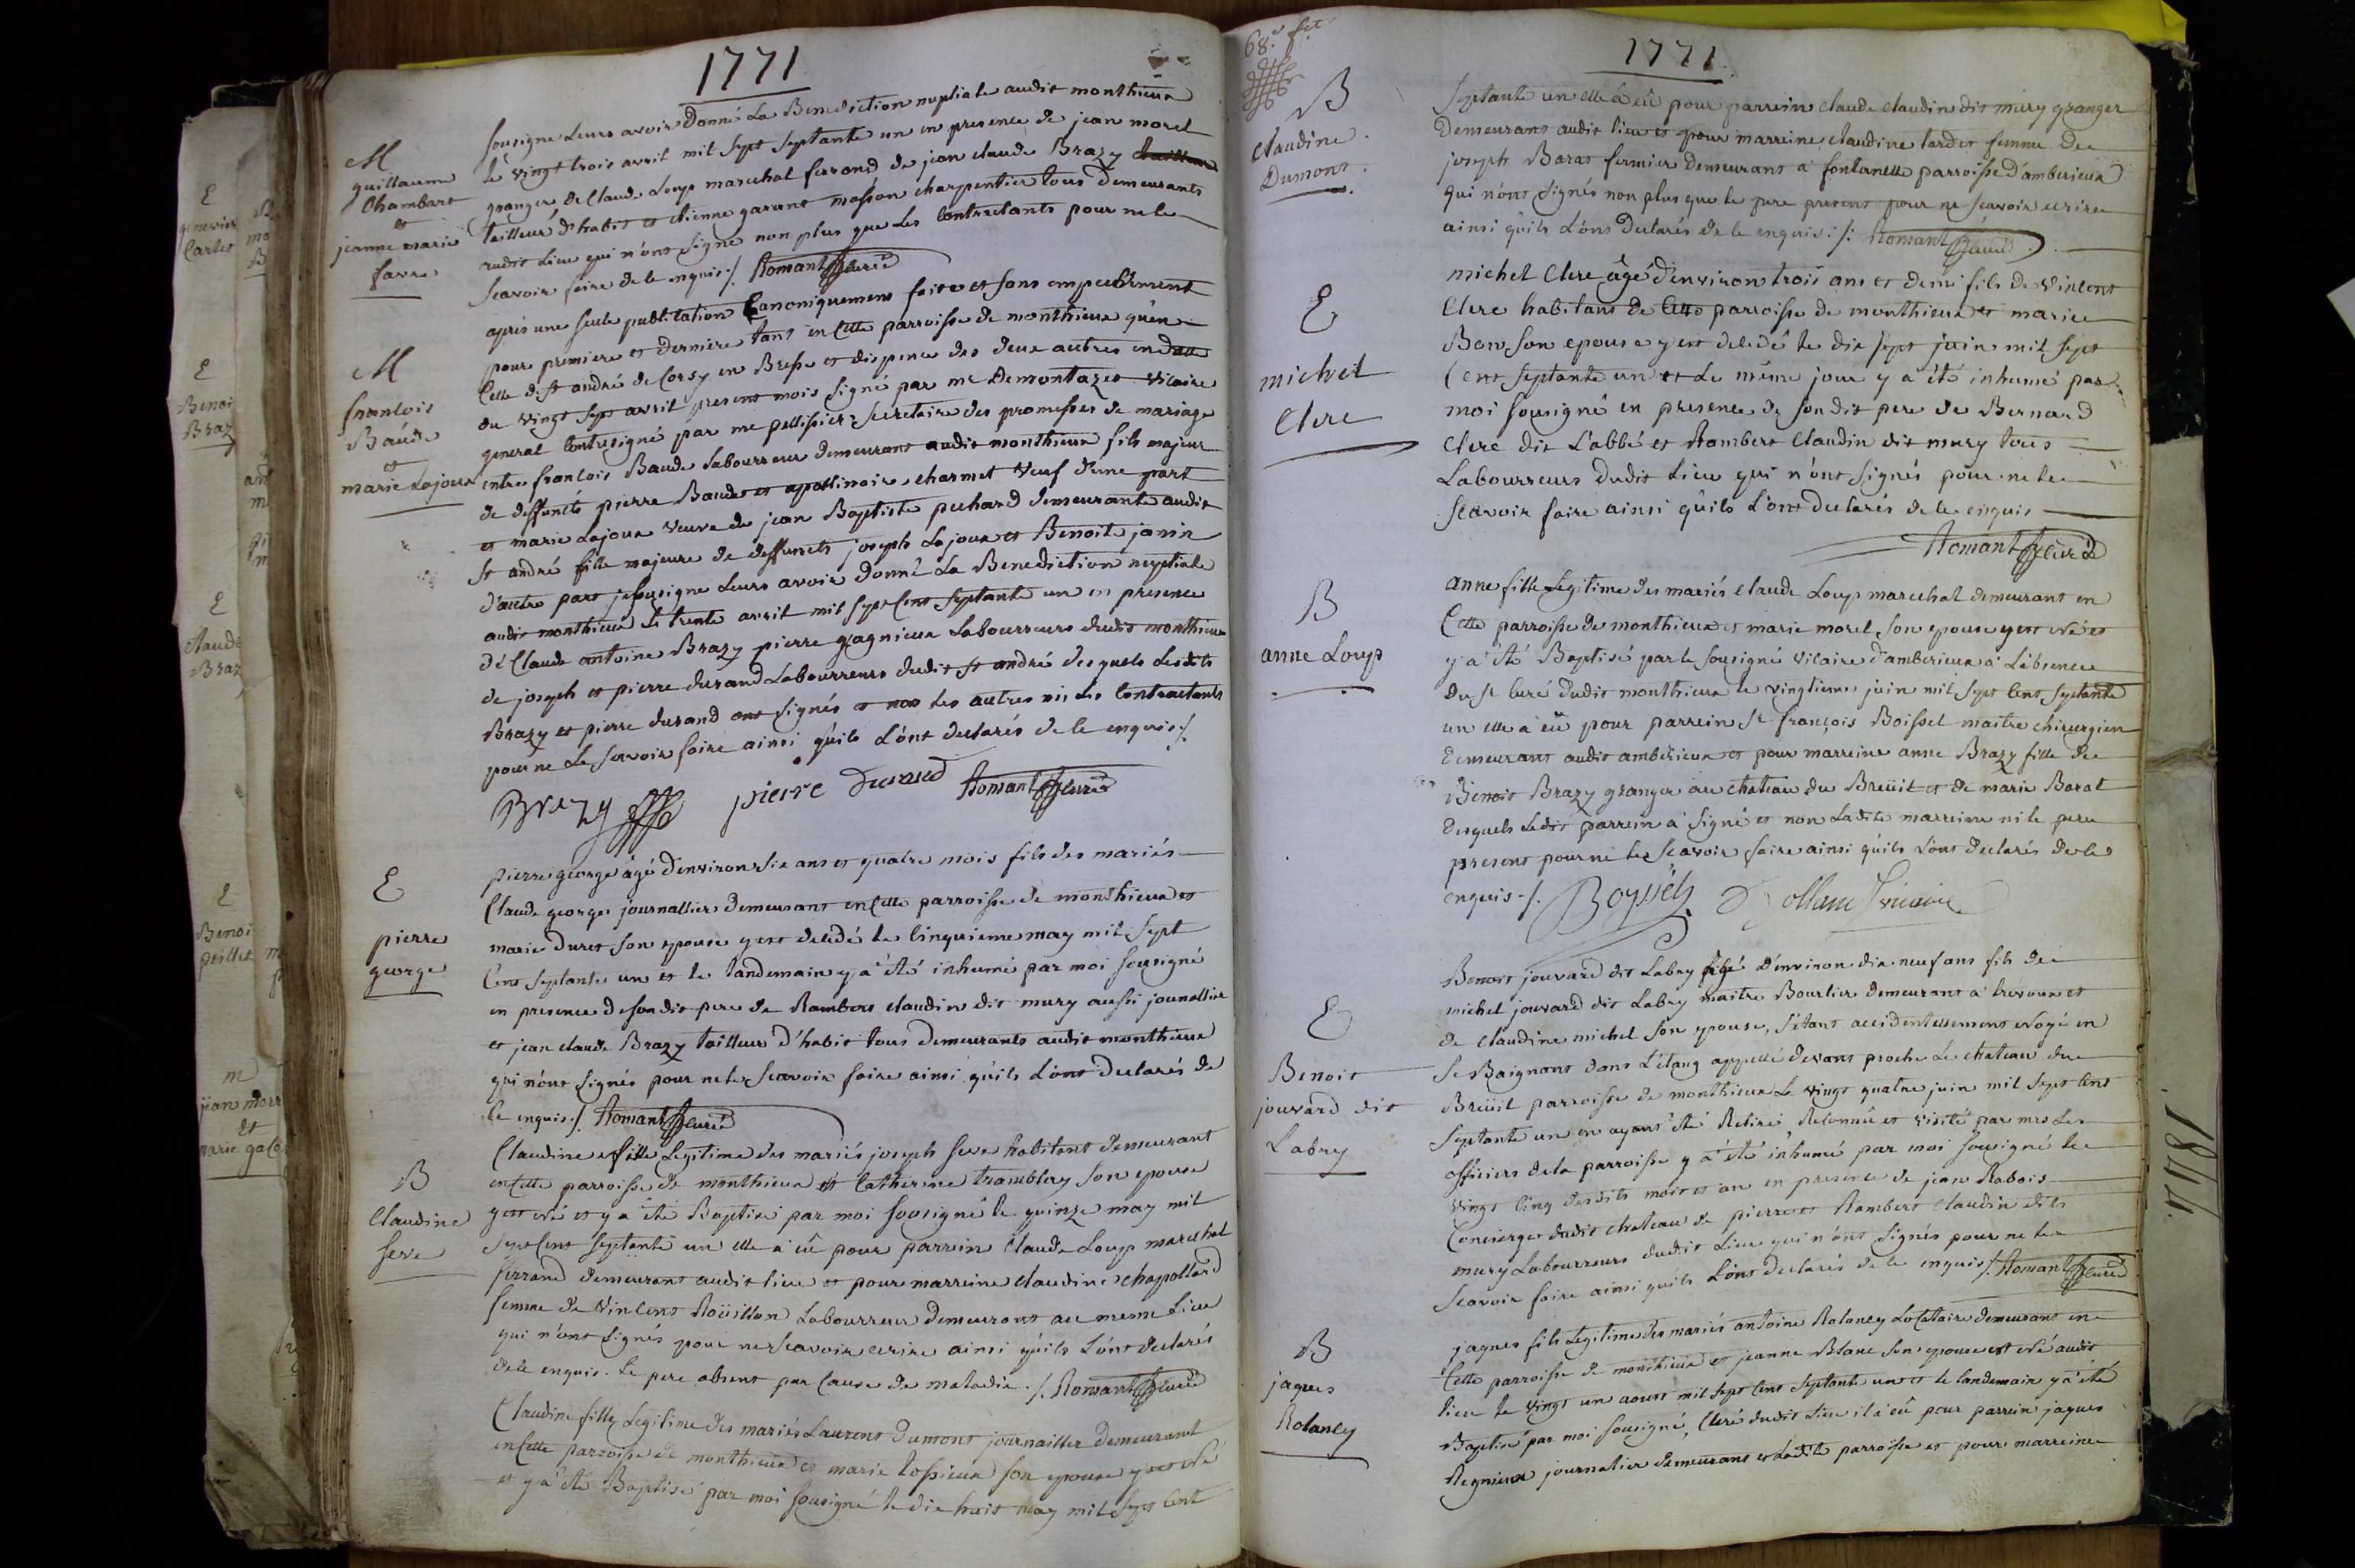 1771
M
guillaume
Chambart
et
jeanne marie
favre
sousigne Leurs avoir Donné La Benediction nuptiale audit monthieux
le vingt trois avril mil sept septante un en presence de jean morel
granger de Claude Loup marechal ferrand de jean claude Brazy
tailleur d'habit et etienne garant masson charpentier tous demeurants
audit Lieu qui n'ont signe non plus que Les Contractants pour ne le
scavoir faire de le enquis ./. Romant Curé
M
francois
Baude
et
marie Lajoux
apres une seule publication Canoniquement faite et sans empechement
pour premiere et derniere tant en Cette parroisse de monthieux qu'en
Celle de st andré de Corsy en Bresse et dispence des deux autres en datte
du vingt sept avril present mois signé par mr Demontazet vicaire
general Contresigné par me pellissier secretaire des promesses de mariage
entre francois Baude Labourreur demeurant audit monthieux fils majeur
de deffuncts pierre Baude et apollinaire charmet veuf d'une part
et marie Lajoux veuve de jean Baptiste pechard demeurante audit
st andré fille majeure de deffuncts joseph Lajoux et Benoite janin
d'autre part je sousigne Leurs avoir donné La Benediction nuptiale
audit monthieux le trente avril mil sept Cent septante un en presence
de Claude antoine Brazy pierre gagnieux Labourreurs dudit monthieux
de joseph et pierre durand Labourreurs dudit st andré desquels Lesdits
Brazy et pierre durand ont signés et non les autres ni Les Contractants
pour ne Le scavoir faire ainsi qu'ils L'ont declarés de le enquis ./.
Brazy pierre Durand Romant Curé
E
pierre
george
pierre george âgé d'environ six ans et quatre mois fils des mariés
Claude george journallier demeurant en Cette parroisse de monthieux et
marie duret son epouse y est decedé le Cinquieme may mil sept
Cent septante un et le landemain y a été inhumé par moi sousigné
en presence de son dit pere de Rambert claudin dit mury aussi journallier
et jean claude Brazy tailleur d'habit tous demeurants audit monthieux
qui n'ont signés pour ne le scavoir faire ainsi qu'ils L'ont declarés de
le enquis ./. Romant Curé
B
Claudine
seve
Claudine fille Legitime des mariés joseph seve habitant demeurant
en Cette parroisse de monthieux et Catherine tramblay son epouse
y est né et y a été Baptisé par moi sousigné le quinze may mil
sept Cent septante un elle a eû pour parrein Claude Loup marechal
ferrand demeurant audit lieu et pour marreine claudine chapollard
femme de vincent Roüillon Labourreur demeurant au meme Lieu
qui n'ont signés pour ne scavoir ecrire ainsi qu'ils L'ont declarés
de le enquis. Le pere absent par Cause de maladie ./. Romant Curé
Claudine fille Legitime des mariés Laurent dumont journallier demeurant
en Cette parroisse de monthieux et marie tossieux son epouse y est né
et y a été Baptisé par moi sousigné le dix huit may mil sept Cent
1771
B
Claudine
Dumont
septante un elle a eû pour parrein claude claudin dit mury granger
Demeurant audit lieu et pour marreine claudine tardet femme de
joseph Barat fermier demeurant a fontanelle parroisse d'amberieux
qui n'ont signés non plus que le pere present pour ne scavoir ecrire
ainsi qu'ils L'ont declarés de le enquis ./. Romant Curé
E
michel
Clere
michel Clere âgé d'environ trois ans et demi fils de vincent
Clere habitant de Cette parroisse de monthieux et marie
Bon son epouse y est decedé le dix sept juin mil sept
Cent septante un et Le même jour y a été inhumé par
moi sousigné en presence de son dit pere de Bernard
Clere dit L'abbé et Rambert Claudin dit mury tous
Labourreurs dudit Lieu qui n'ont signés pour ne le
scavoir faire ainsi qu'ils L'ont declarés de le enquis
Romant Curé
B
anne Loup
anne fille Legitime des mariés Claude Loup marechal demeurant en
Cette parroisse de monthieux et marie morel son epouse y est né et
y a été Baptisé par le sousigné vicaire d'amberieux a L'absence
du sr Curé dudit monthieux le vingtieme juin mil sept Cent septante
un elle a eû pour parrein sr françois Boissel maitre chirurgien
demeurant audit amberieux et pour marreine anne Brazy fille de
Benoit Brazy granger au chateau du Breüit et de marie Barat
desquels Ledit parrein a signé et non Ladite marreine ni le pere
present pour ne le scavoir faire ainsi qu'ils L'ont declarés de le
enquis ./. vicaire
E
Benoit
jouvard dit
Labry
Benoit jouvard dit Labry âgé d'environ dix neuf ans fils de
michel jouvard dit Labry maitre Bourlier demeurant a trevoux et
de Claudine michel son epouse, s'étant accidentellement noyé en
se Baignant dans L'étang appellé devant proche Le chateau du
Breüil parroisse de monthieux Le vingt quatre juin mil sept Cent
septante un en ayant été Retiré Reconnû et visité par mrs Les
officiers de la parroisse y a été inhumé par moi sousigné le
vingt Cinq desdits mois et an en presence de jean Rabois
Concierge dudit chateau de pierre et Rambert Claudin dits
mury Labourreurs dudit Lieu qui n'ont signés pour ne le
scavoir faire ainsi qu'ils L'ont declarés de le enquis ./. Romant Curé
B
jaques
Rolancy
jaques fils Legitime des mariés antoine Rolancy Locataire demeurant en
Cette parroisse de monthieux et jeanne Blanc son epouse est né audit
lieu le vingt un aoust mil sept Cent septante un et le landemain y a été
Baptisé par moi sousigné, Curé dudit Lieu il a eû pour parrein jaques
Regnieux journalier demeurant et Ladite parroisse et pour marreine
1844